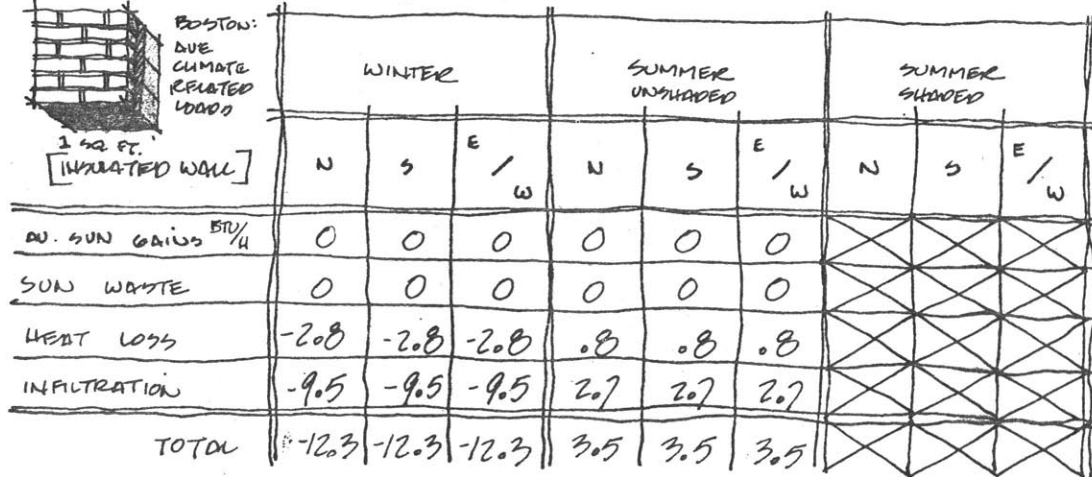 BOSTON:
AVE
CLIMATE
RELATED
LOADS
1 SQ FT.
[INSULATED WALL]
WINTER
SUMMER
UNSHADED
SUMMER
SHADED
N S E/W N S E/W N S E/W
AV. SUN GAINS BTU/H 0 0 0 0 0 0
SUN WASTE 0 0 0 0 0 0
HEAT LOSS -2.8 -2.8 -2.8 .8 .8 .8
INFILTRATION -9.5 -9.5 -9.5 2.7 2.7 2.7
TOTAL -12.3 -12.3 -12.3 3.5 3.5 3.5